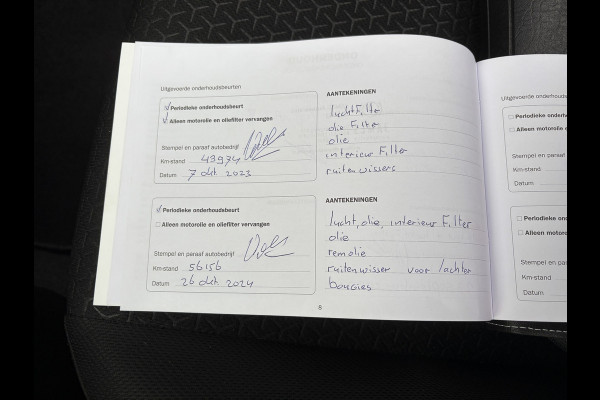 Uitgevoerde onderhoudsbeurten
Periodieke onderhoudsbeurt
Alleen motorolie en oliefilter vervangen
Stempel en paraaf autobedrijf
Km-stand 43974
Datum 7 okt 2023
AANTEKENINGEN
luchtFilter
olie Filter
olie
interieur Filter
ruitenwissers
Periodieke onderhoudsbeurt
Alleen motorolie en oliefilter vervangen
Stempel en paraaf autobedrijf
Km-stand 56156
Datum 26 okt 2024
AANTEKENINGEN
lucht, olie, interieur Filter
olie
remolie
ruitenwisser voor/achter
bougies
8
Uitgevoerde onderhoudsbeurten
Periodieke onderh
Alleen motorolie e
Stempel en paraaf
Km-stand
Datum
Periodieke ond
Alleen motorol
Stempel en para
Km-stand
Datum